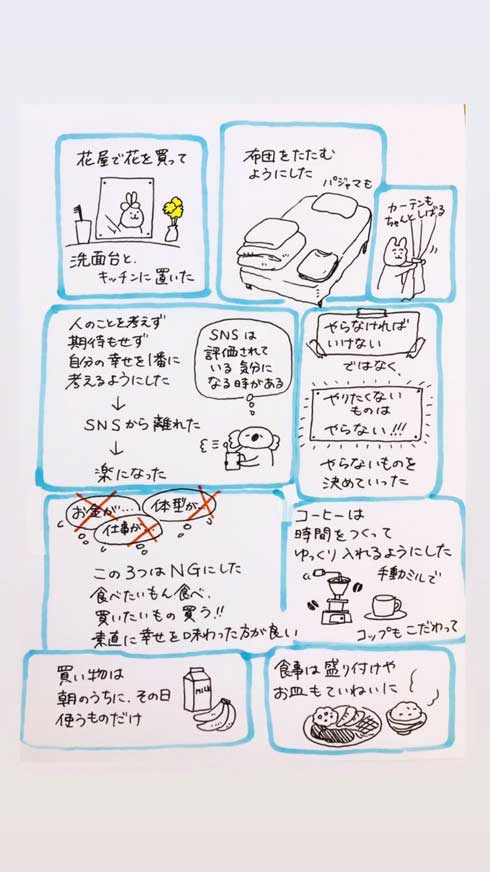 花屋で花を買って
洗面台と、
キッチンに置いた
布団をたたむ
ようにした
パジャマも
カーテンも
ちゃんとしばる
人のことを考えず
期待もせず
自分の幸せを1番に
考えるようにした
↓
SNSから離れた
↓
楽になった
SNSは
評価されて
いる気分に
なる時がある
やらなければ
いけない
ではなく、
やりたくない
ものは
やらない!!!
やらないものを
決めていった
お金が…
体型が…
仕事が…
この3つはNGにした
食べたいもん食べ、
買いたいもの買う!!
素直に幸せを味わった方が良い
コーヒーは
時間をつくって
ゆっくり入れるようにした
手動ミルで
コップもこだわって
買い物は
朝のうちに、その日
使うものだけ
MILK
食事は盛り付けや
お皿もていねいに